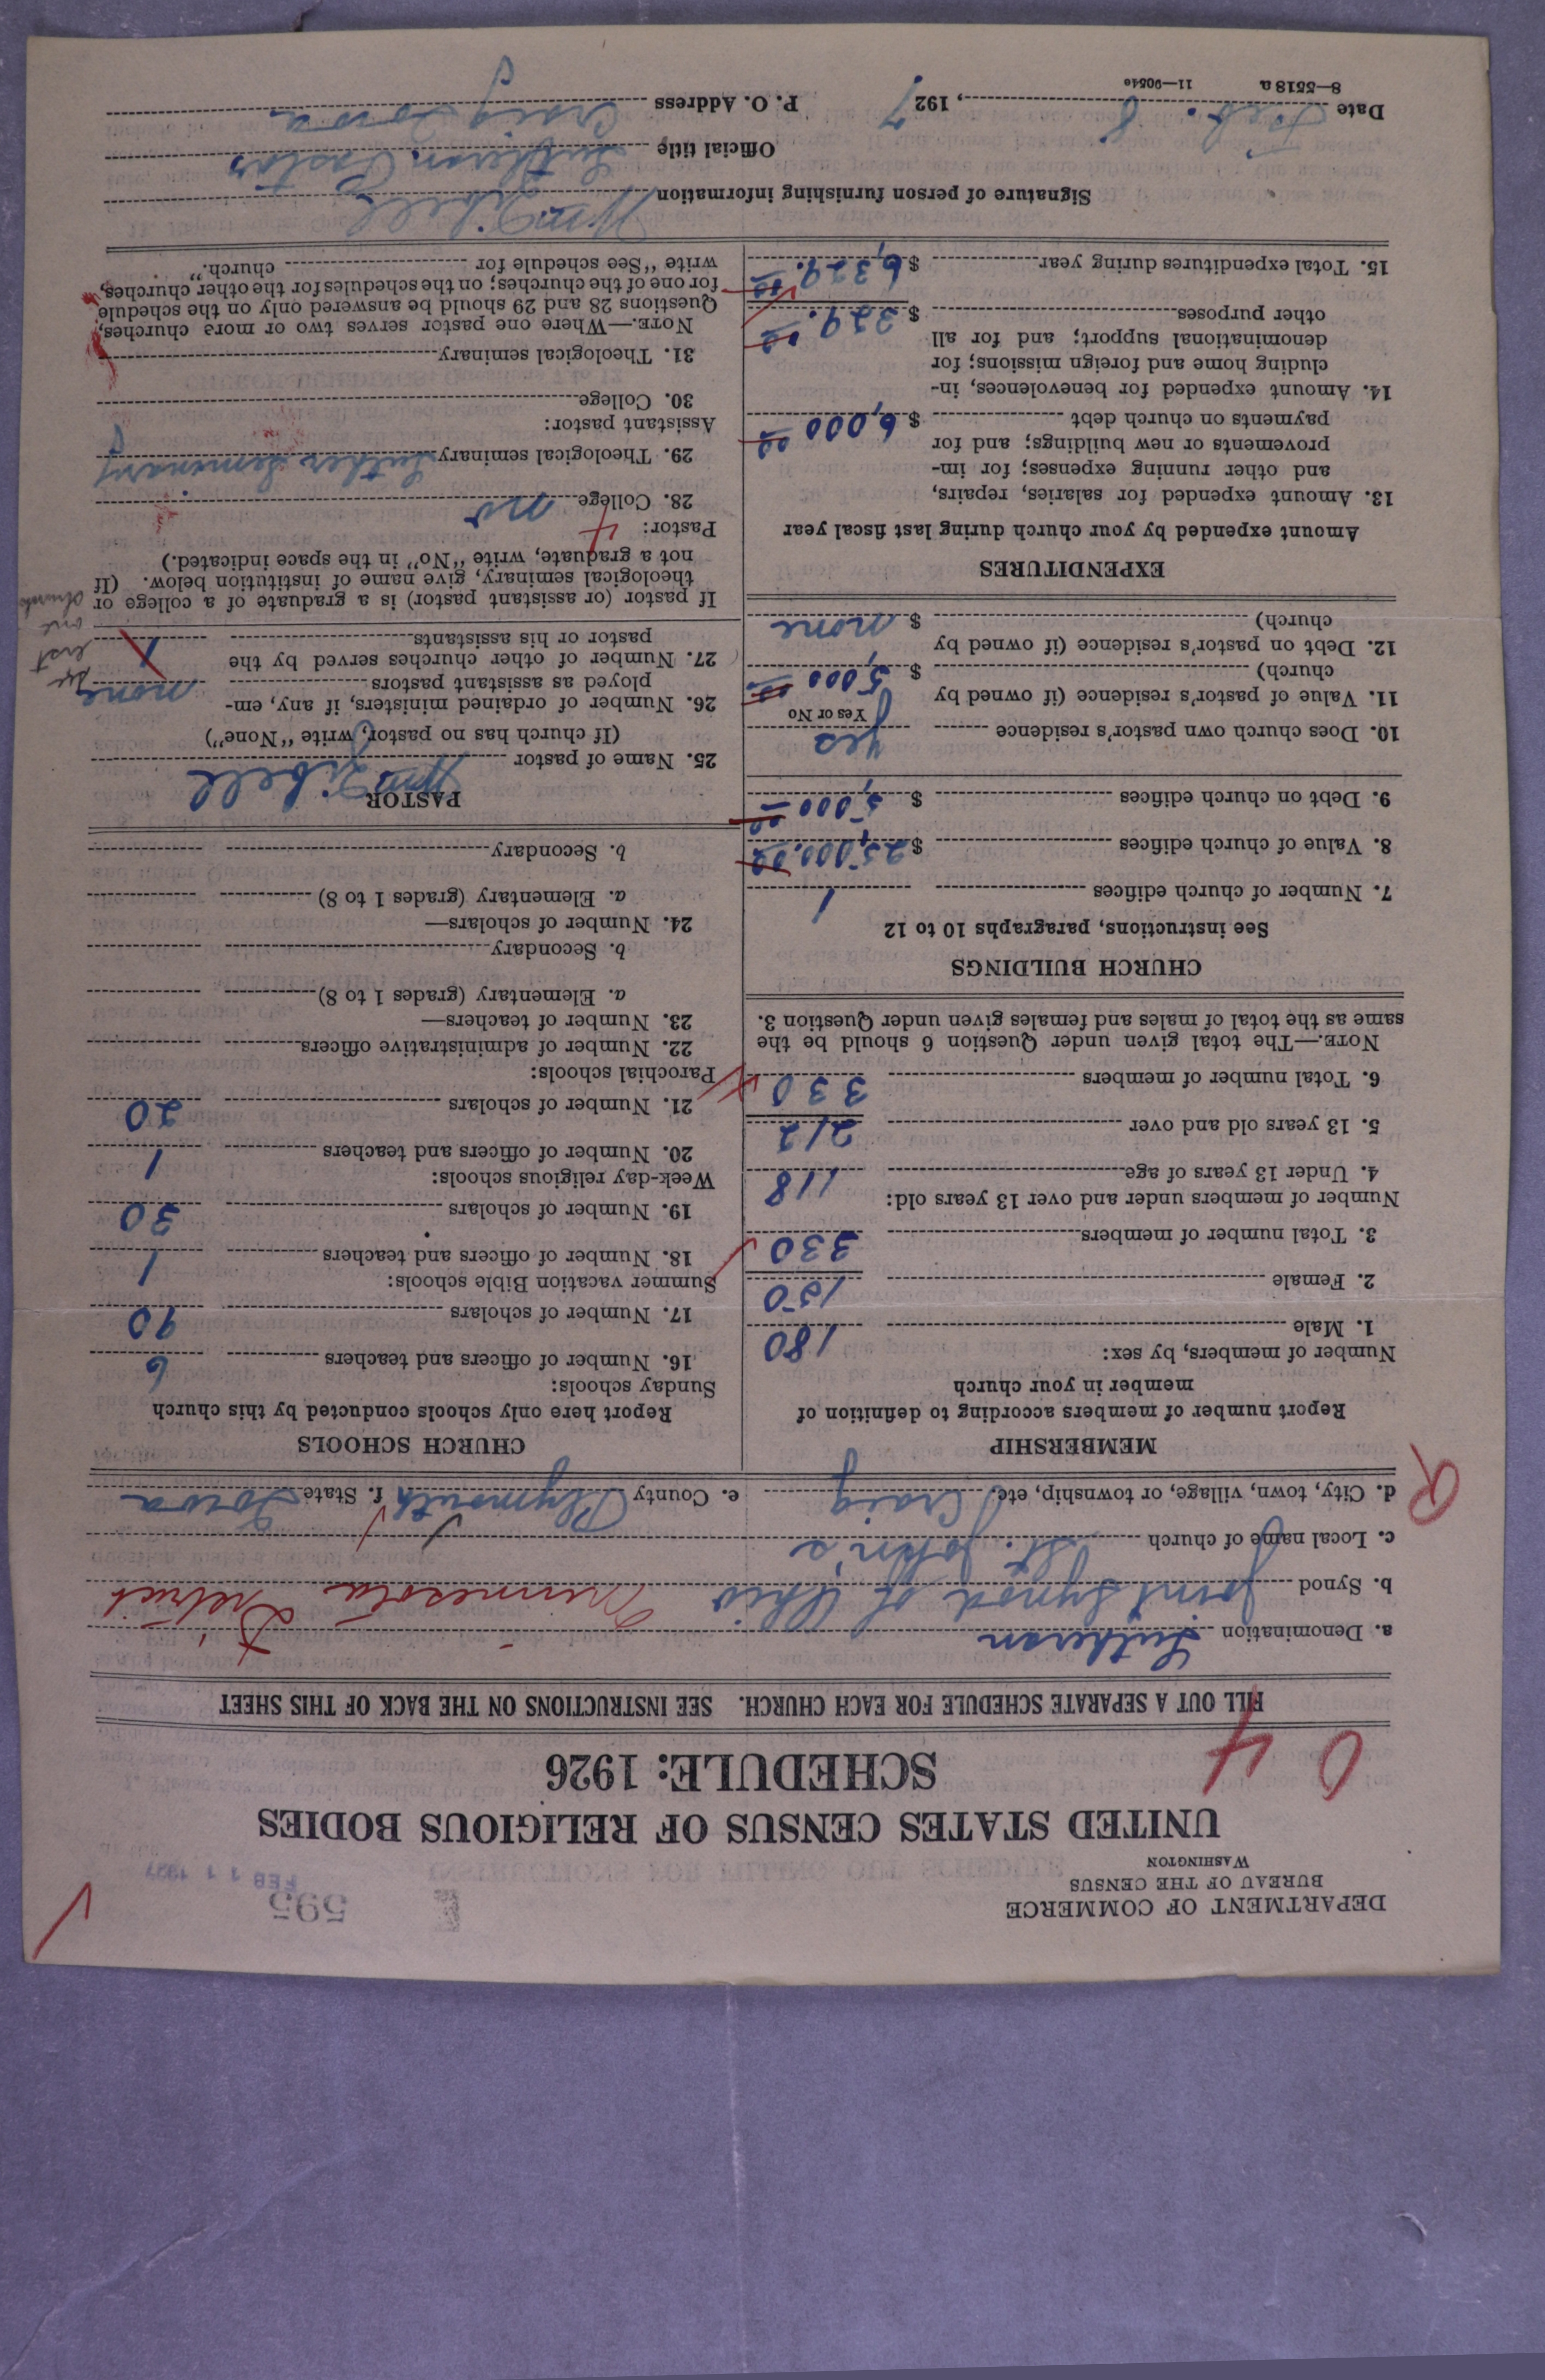 DEPARTMENT OF COMMERCE
BUREAU OF THE CENSUS
WASHINGTON
595
FEB 11 1927
UNITED STATES CENSUS OF RELIGIOUS BODIES
SCHEDULE: 1926
0 4
FILL OUT A SEPARATE SCHEDULE FOR EACH CHURCH. SEE INSTRUCTIONS ON THE BACK OF THIS SHEET
a. Denomination Lutheran
b. Synod Joint Synod of Ohio Minnesota District
c. Local name of church St. John's
d. City, town, village, or township, etc. Craig e. County Plymouth f. State Iowa
MEMBERSHIP
Report number of members according to definition of
member in your church
Number of members, by sex:
1. Male 180
2. Female 150
3. Total number of members 330
Number of members under and over 13 years old:
4. Under 13 years of age 118
5. 13 years old and over 212
6. Total number of members 330
NOTE.—The total given under Question 6 should be the
same as the total of males and females given under Question 3.
CHURCH BUILDINGS
See instructions, paragraphs 10 to 12
7. Number of church edifices 1
8. Value of church edifices $25,000.00
9. Debt on church edifices $5,000 00
10. Does church own pastor's residence yes
Yes or No
11. Value of pastor's residence (if owned by
church) $5,000 00
12. Debt on pastor's residence (if owned by
church) $none
EXPENDITURES
Amount expended by your church during last fiscal year
13. Amount expended for salaries, repairs,
and other running expenses; for im-
provements or new buildings; and for
payments on church debt $6,000 00
14. Amount expended for benevolences, in-
cluding home and foreign missions; for
denominational support; and for all
other purposes $329.00
15. Total expenditures during year $6,329.00
CHURCH SCHOOLS
Report here only schools conducted by this church
Sunday schools:
16. Number of officers and teachers 6
17. Number of scholars 90
Summer vacation Bible schools:
18. Number of officers and teachers 1
19. Number of scholars 30
Week-day religious schools:
20. Number of officers and teachers 1
21. Number of scholars 20
Parochial schools:
22. Number of administrative officers
23. Number of teachers—
a. Elementary (grades 1 to 8)
b. Secondary
24. Number of scholars—
a. Elementary (grades 1 to 8)
b. Secondary
PASTOR
25. Name of pastor Wm Libell
(If church has no pastor, write "None")
26. Number of ordained ministers, if any, em-
ployed as assistant pastors none
27. Number of other churches served by the
pastor or his assistants 1
If pastor (or assistant pastor) is a graduate of a college or
theological seminary, give name of institution below. (If
not a graduate, write "No" in the space indicated.)
Pastor: 4
28. College no
29. Theological seminary Luther Seminary
Assistant pastor:
30. College
31. Theological seminary
NOTE.—Where one pastor serves two or more churches,
Questions 28 and 29 should be answered only on the schedule
for one of the churches; on the schedules for the other churches,
write "See schedule for church."
Signature of person furnishing information Wm Libell
Official title Lutheran Pastor
Date Feb. 8, 1927 P. O. Address Craig Iowa
8—5518a 11—9054o